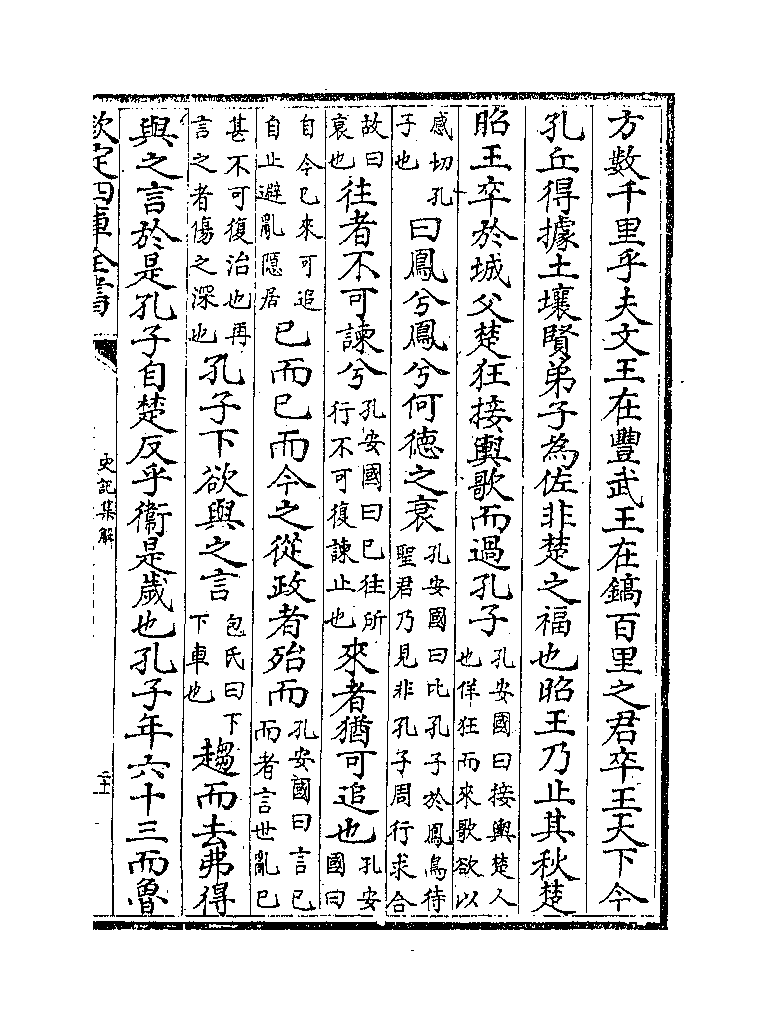 方數千里乎夫文王在豐武王在鎬百里之君卒王天下今
孔丘得據土壤賢弟子為佐非楚之福也昭王乃止其秋楚
昭王卒於城父楚狂接輿歌而過孔子孔安國曰接輿楚人也佯狂而來歌欲以
感切孔子也曰鳳兮鳳兮何德之衰孔安國曰比孔子於鳳鳥待聖君乃見非孔子周行求合
故曰衰也往者不可諫兮孔安國曰已往所行不可復諫止也來者猶可追也孔安國曰
自今已來可追自止避亂隱居已而已而今之從政者殆而孔安國曰言已而者言世亂已
甚不可復治也再言之者傷之深也孔子下欲與之言包氏曰下下車也趨而去弗得
與之言於是孔子自楚反乎衞是歲也孔子年六十三而魯
欽定四庫全書
史記集解